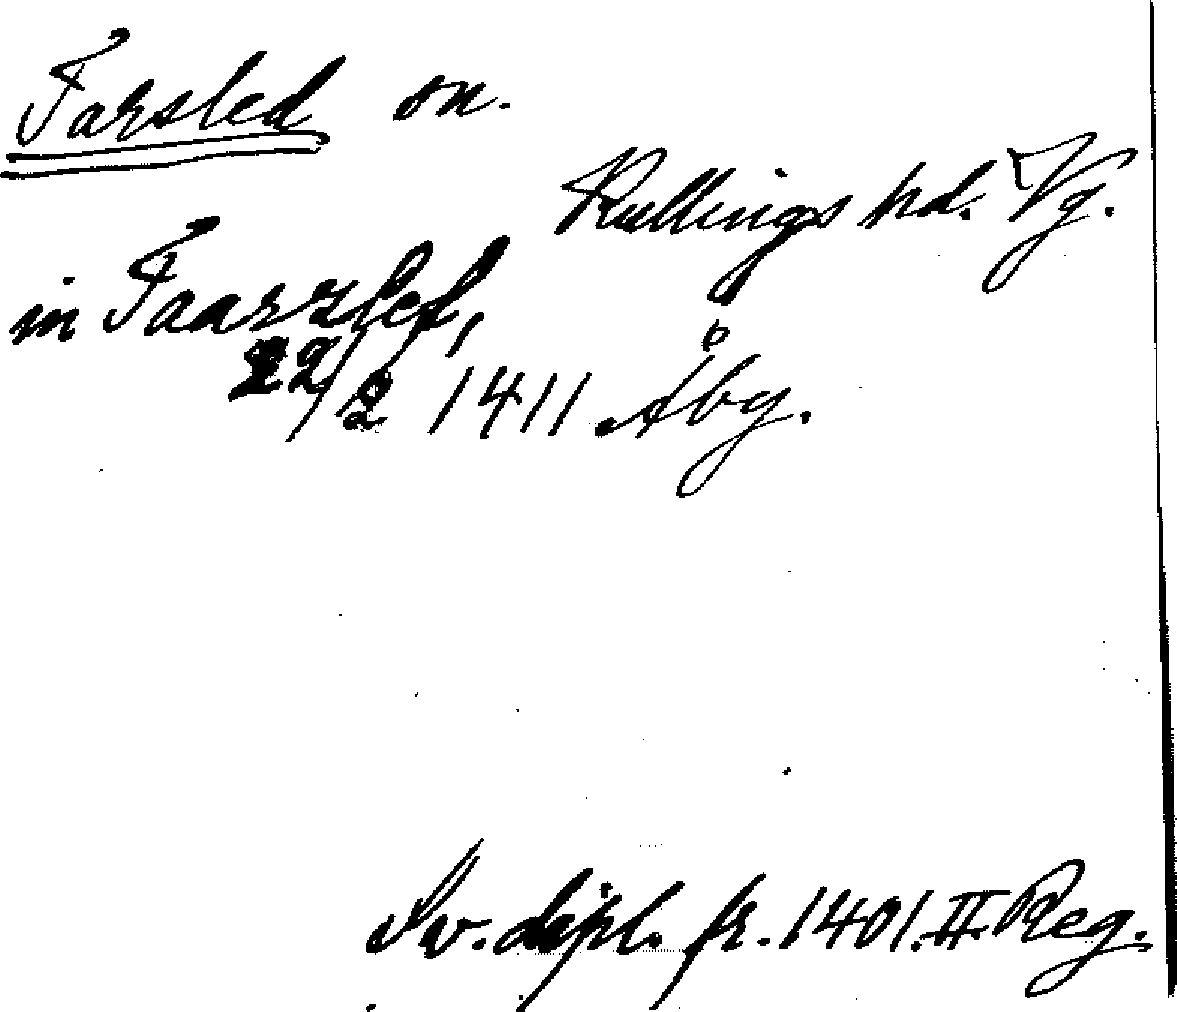 Tarsled sn.
Kullings hd. Vg.
in Taarzlef,
22/2 1411 Åbg.
Sv. dipl. fr. 1401. II Reg.